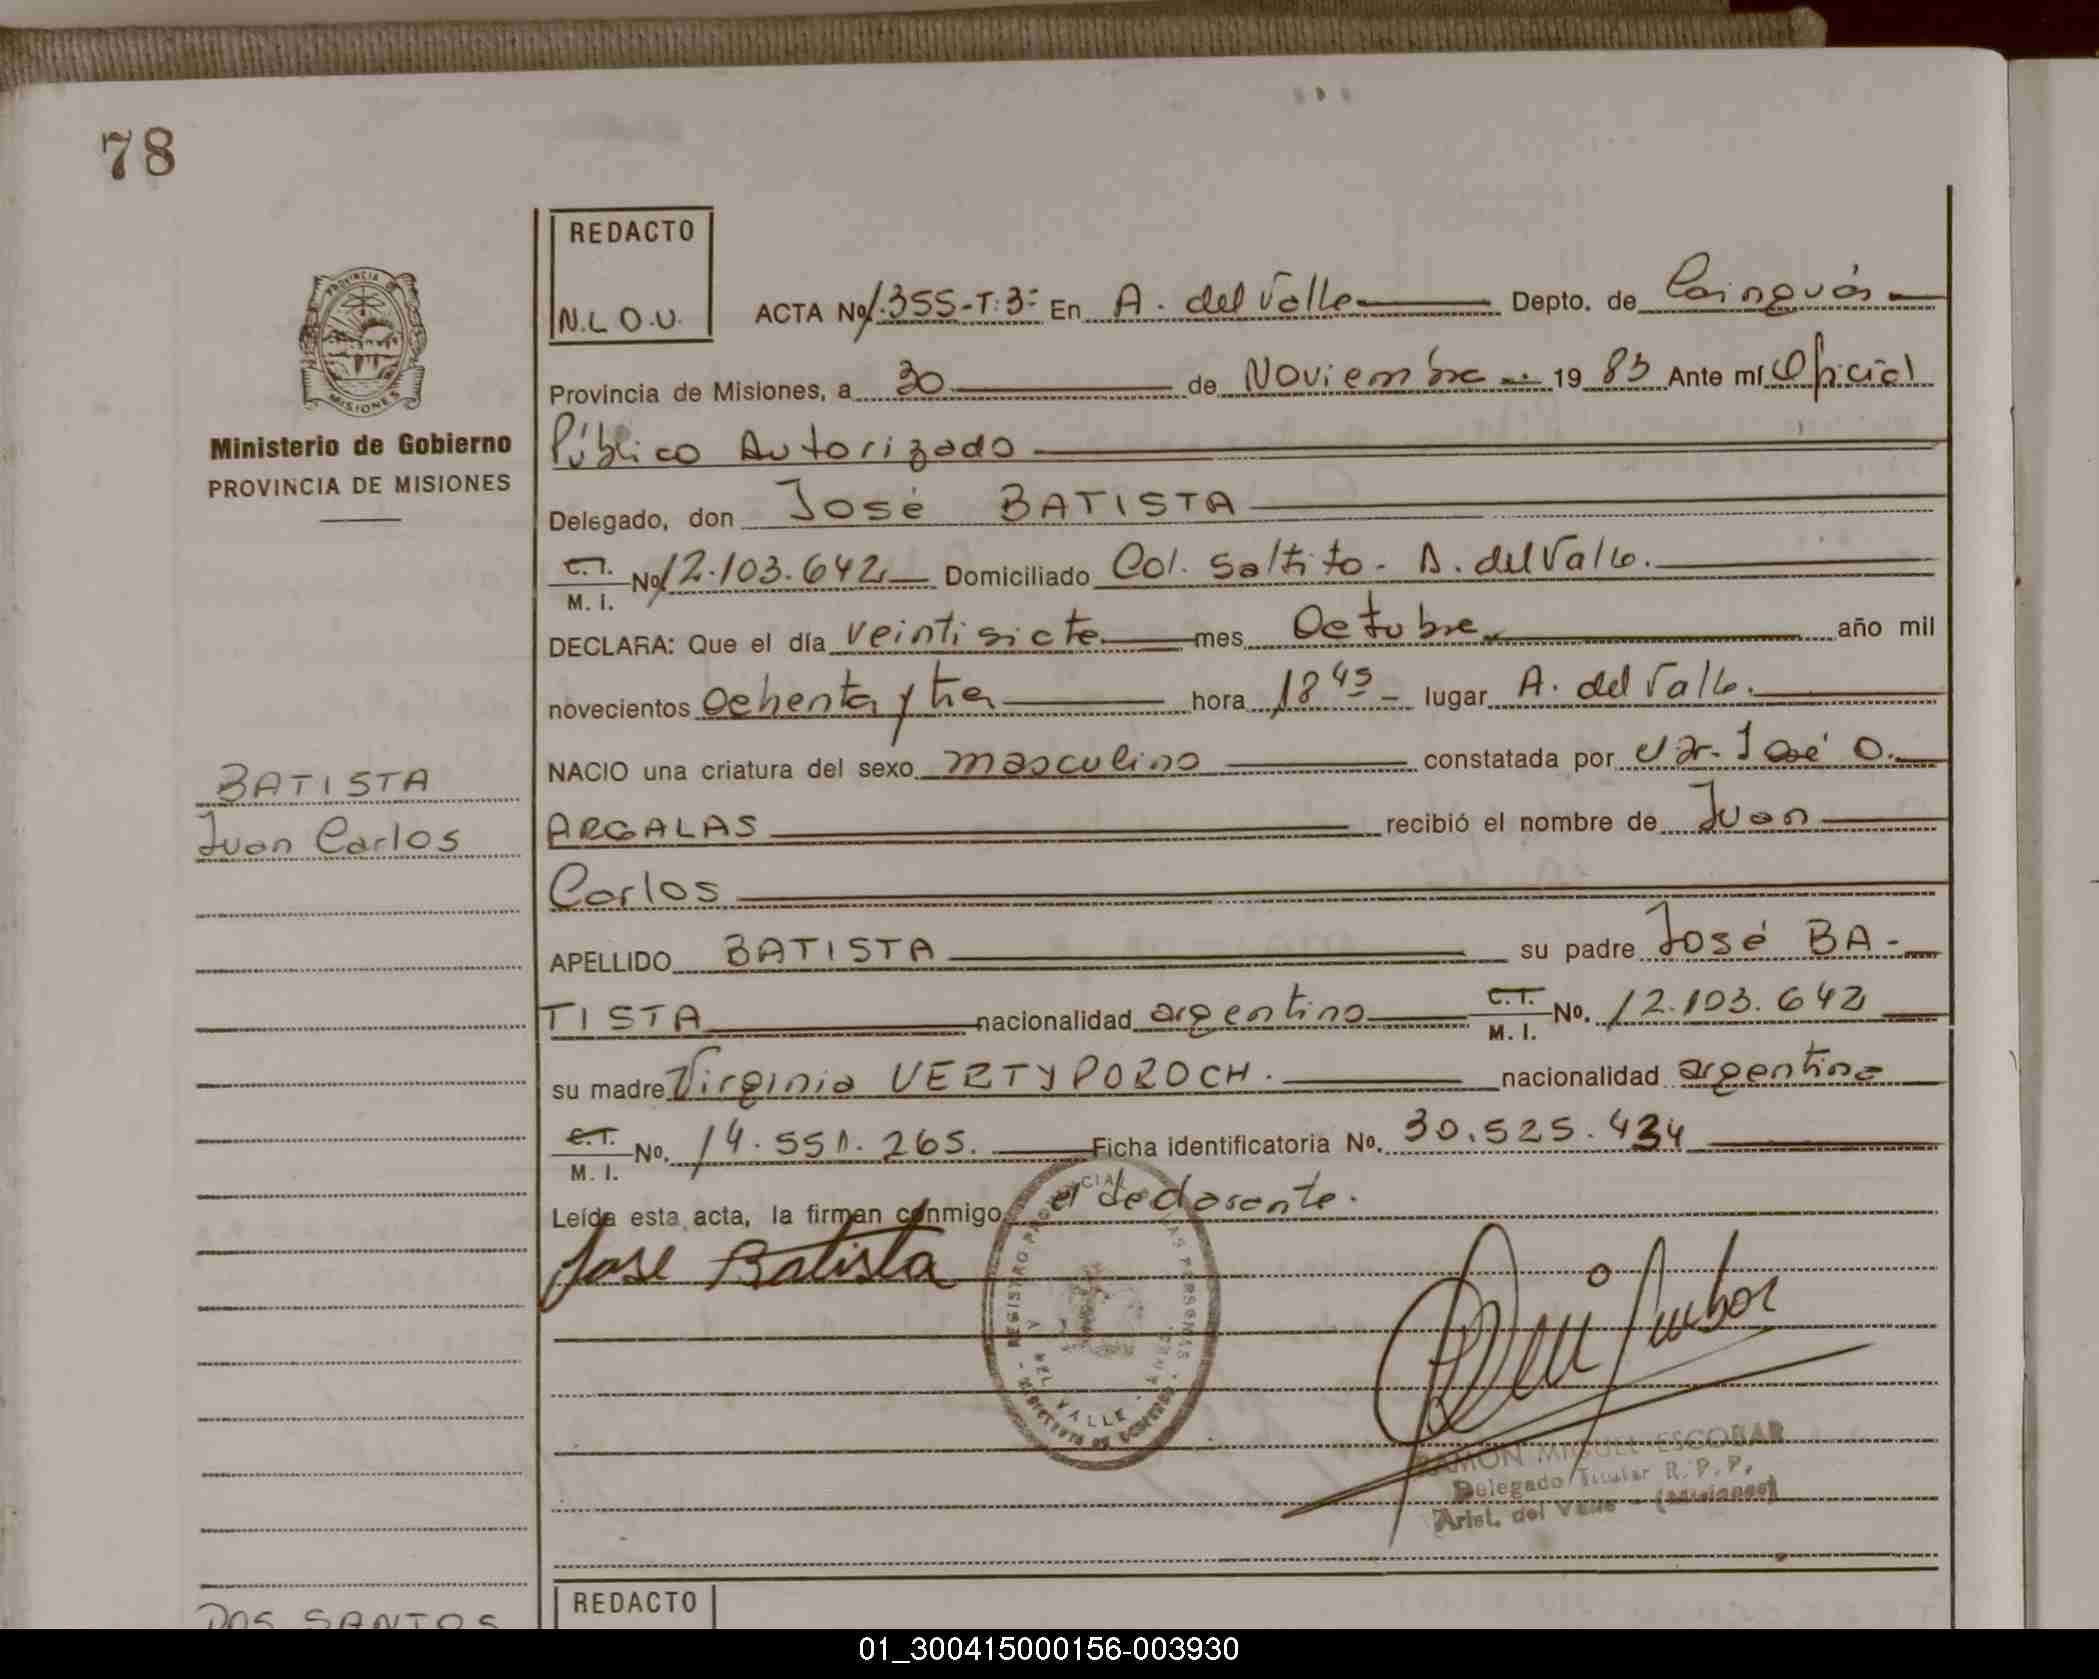 78
REDACTO
N.L.O.U.
ACTA Nº 1.355-T:3º En A. del Valle Depto. de Cainguás
Provincia de Misiones, a 30 de Noviembre 1983 Ante mí Oficial
Público Autorizado
Delegado, don José BATISTA
C.I. M. I. Nº 12.103.642 Domiciliado Col. Saltito - A. del Valle.
DECLARA: Que el día veintisiete mes Octubre año mil
novecientos Ochenta y tres hora 18 45 lugar A. del Valle.
NACIO una criatura del sexo masculino constatada por Dr. José O.
ARGALAS recibió el nombre de Juan
Carlos
APELLIDO BATISTA su padre José BA-
TISTA nacionalidad argentino C.I. M. I. No. 12.103.642
su madre Virginia VERTYPOROCH. nacionalidad argentina
C.I. M. I. No. 14.551.265. Ficha identificatoria No. 30.525.434
Leída esta acta, la firman conmigo el declarante.
Jose Batista
REGISTRO PROVINCIAL DE LAS PERSONAS
A. DEL VALLE
RAMON MIGUEL ESCOBAR
Delegado Titular R. P. P.
Arist. del Valle - (Misiones)
PROVINCIA DE
MISIONES
Ministerio de Gobierno
PROVINCIA DE MISIONES
BATISTA
Juan Carlos
DOS SANTOS
REDACTO
01_300415000156-003930